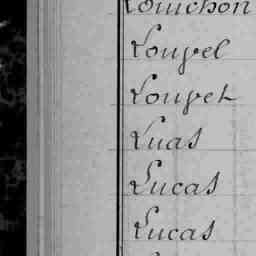 Louichon
Loupel
Loupet
Luas
Lucas
Lucas